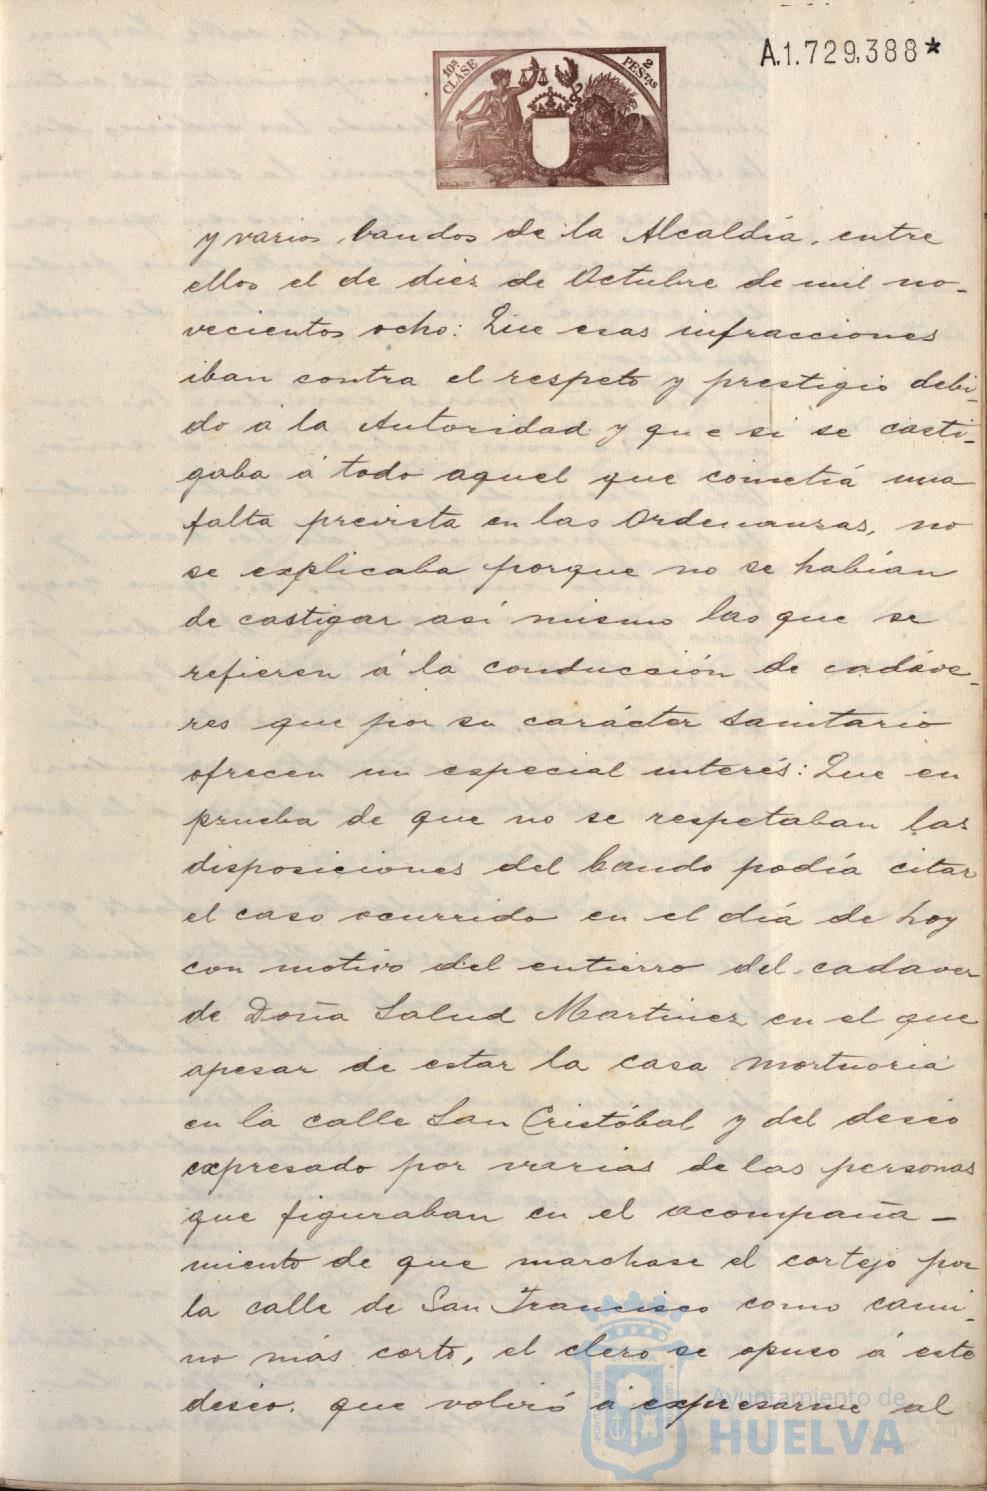 A.1.729,388*
10ª CLASE
2 PESTAS
y varios bandos de la Alcaldía, entre
ellos el de diez de Octubre de mil no-
vecientos ocho: Que esas infracciones
iban contra el respeto y prestigio debi-
do á la Autoridad y que si se casti-
gaba á todo aquel que cometiá una
falta prevista en las Ordenanzas, no
se explicaba porque no se habían
de castigar así mismo las que se
refieren á la conducción de cadáve-
res que por su carácter sanitario
ofrecen un especial interés: Que en
prueba de que no se respetaban las
disposiciones del bando podía citar
el caso ocurrido en el día de hoy
con motivo del entierro del cadaver
de Doña Salud Martinez en el que
apesar de estar la casa mortuoria
en la calle San Cristóbal y del deseo
expresado por varias de las personas
que figuraban en el acompaña-
miento de que marchase el cortejo por
la calle de San Francisco como cami-
no más corto, el clero se opuso á este
deseo, que volvió á expresarme al
Ayuntamiento de
HUELVA